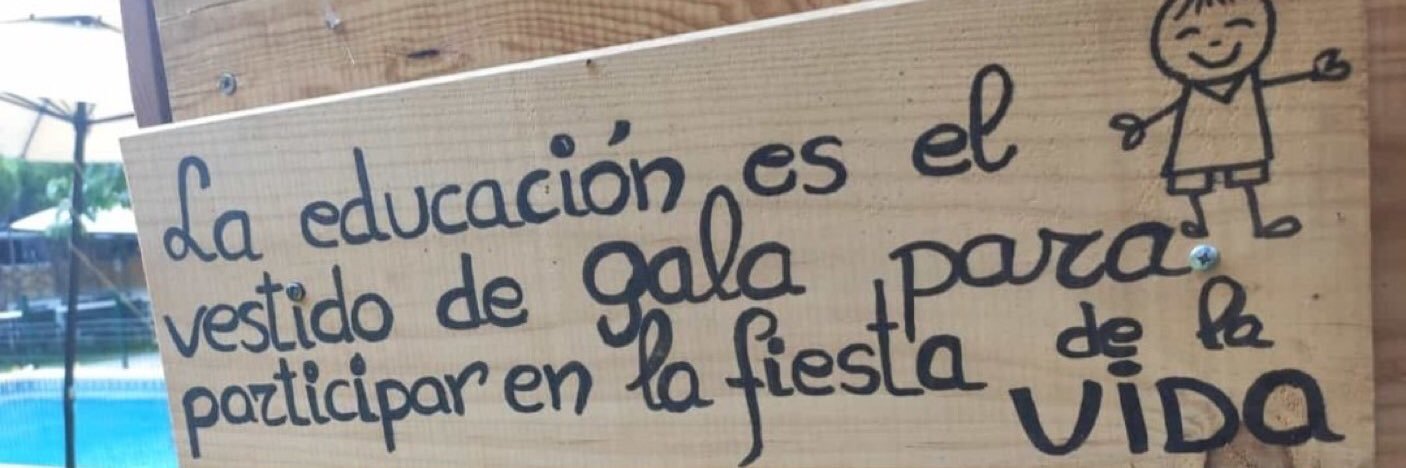 La educación es el
vestido de gala para
participar en la fiesta de la
VIDA